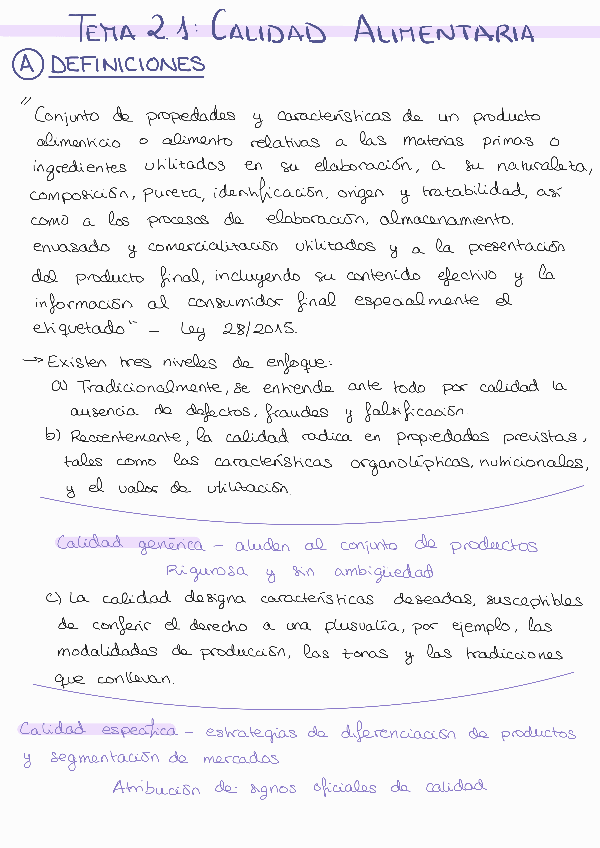 TEMA 2.1: CALIDAD ALIMENTARIA
A DEFINICIONES
"
Conjunto de propedades y características de un producto
alimenticio o alimento relativas a las materias primas o
ingredientes utilizados en su elaboración, a su naturaleza,
composición, pureza, identificación, origen y tratabilidad, así
como a los procesos de elaboración, almacenamiento.
envasado y comercialización utilizados y a la presentación
del producto final, incluyendo su contenido efectivo y la
información al consumidor final especialmente el
etiquetado" – Ley 28/2015.
→ Existen tres niveles de enfoque:
a) Tradicionalmente, se entiende ante todo por calidad la
ausencia de defectos, fraudes y falsificación
b) Recientemente, la calidad radica en propiedades previstas,
tales como las características organolépticas, nutricionales,
y el valor de utilización.
Calidad genérica – aluden al conjunto de productos
Rigurosa y sin ambigüedad
c) La calidad designa características deseadas, susceptibles
de conferir el derecho a una plusvalía, por ejemplo, las
modalidades de producción, las zonas y las tradicciones
que conllevan.
Calidad específica – estrategias de diferenciación de productos
y segmentación de mercados
Atribución de signos oficiales de calidad